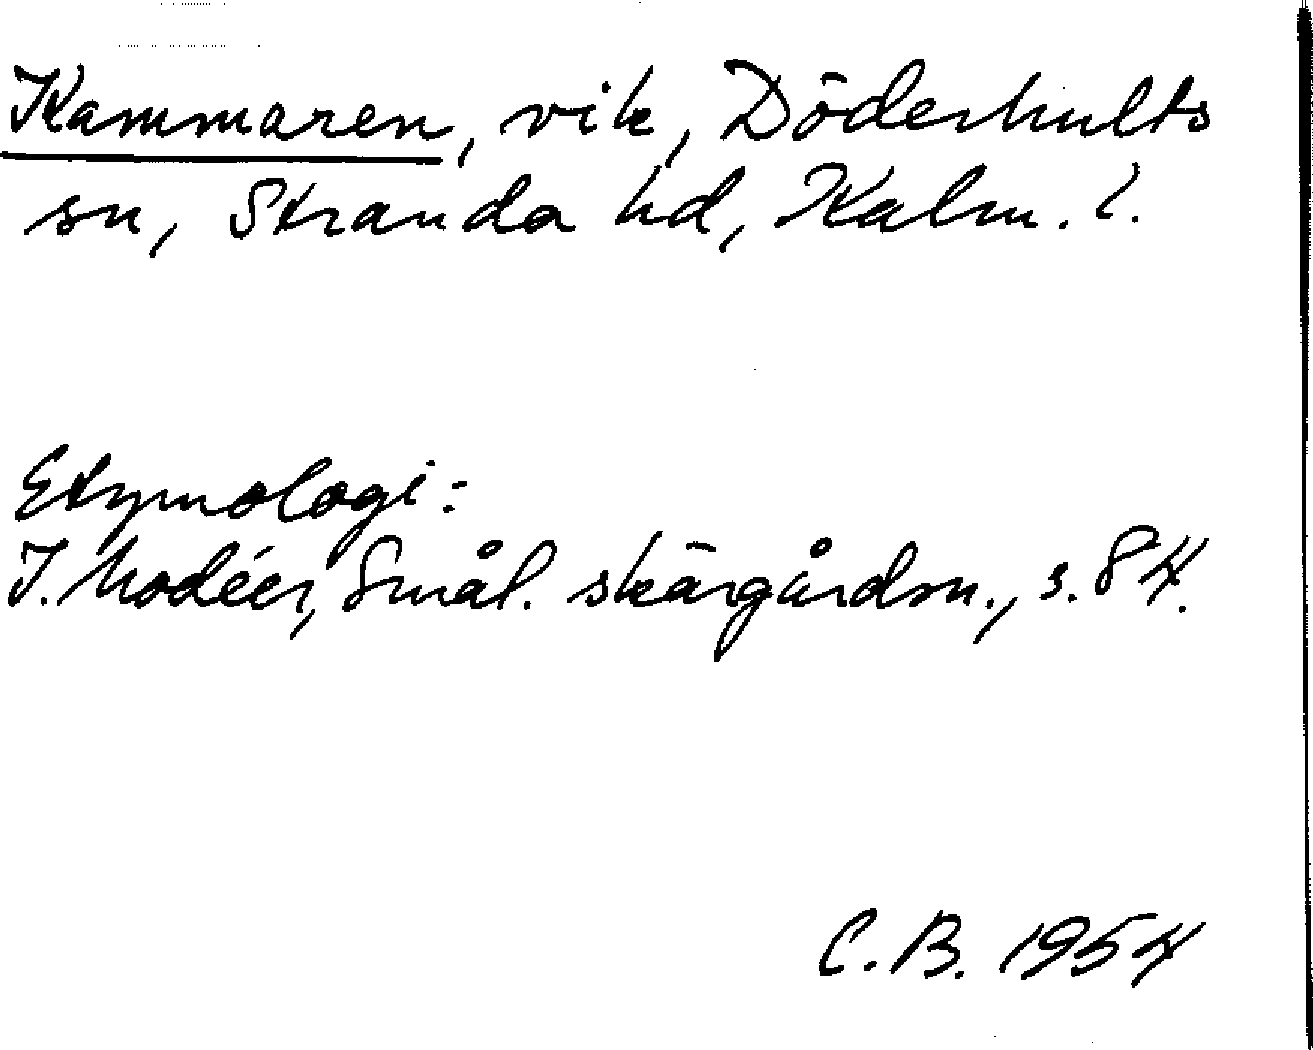 Kammaren, vik, Döderhults
sn, Stranda hd, Kalm. l.
Etymologi:
I. Modéer, Smål. skärgårdsn., s. 84.
C.B. 1954